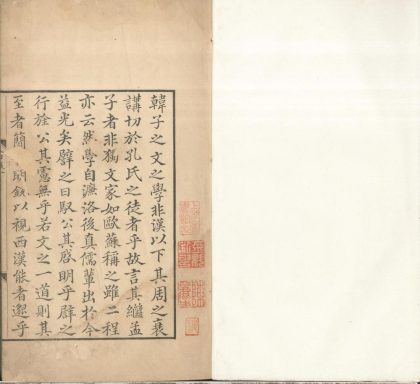 韓子之文之學非漢以下其周之衰
講切於孔氏之徒者乎故言其繼孟
子者非獨文家如歐蘇稱之雖二程
亦云然學自濂洛後真儒輩出於今
益光矣譬之日馭公其啓明乎辟之
行旅公其憲無乎若文之一道則其
至者簡 明鈠以視西漢能者遜乎